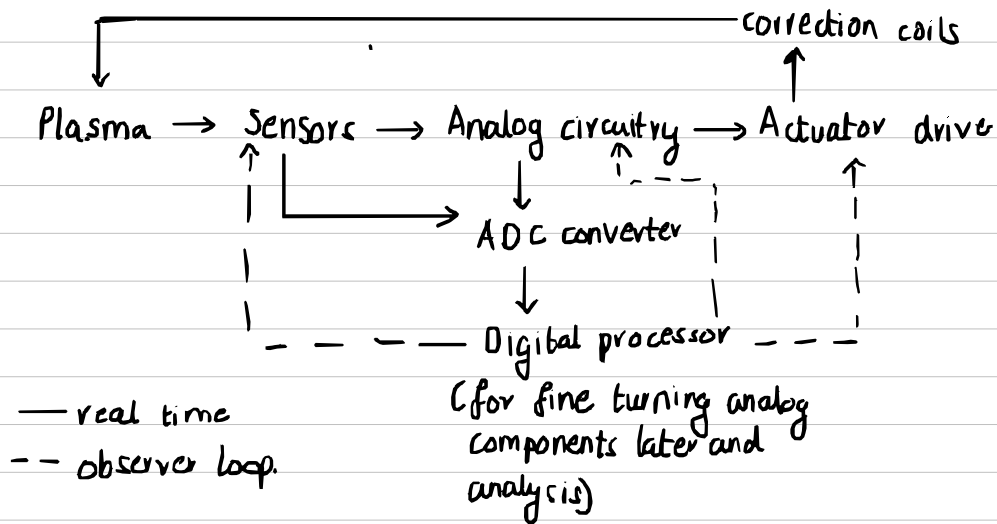 correction coils
Plasma → Sensors → Analog circuitry → Actuator driver
ADC converter
Digital processor
(for fine turning analog
components later and
analysis)
— real time
-- observer loop.